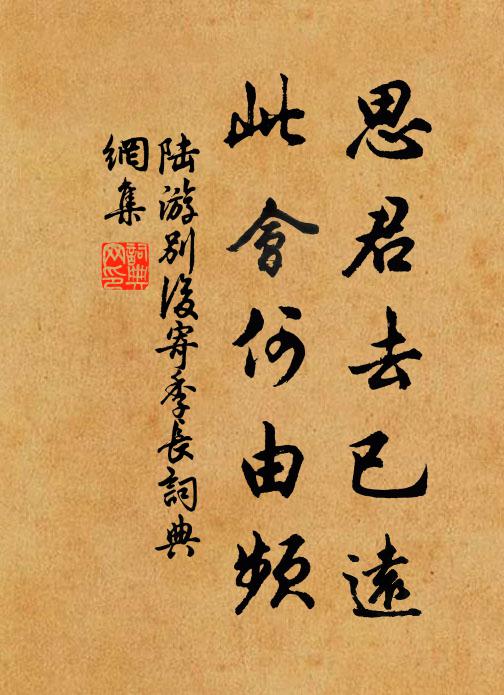 思君去已遠
此會何由頻
陸游別後寄季長詞典
網集
詞典
网印